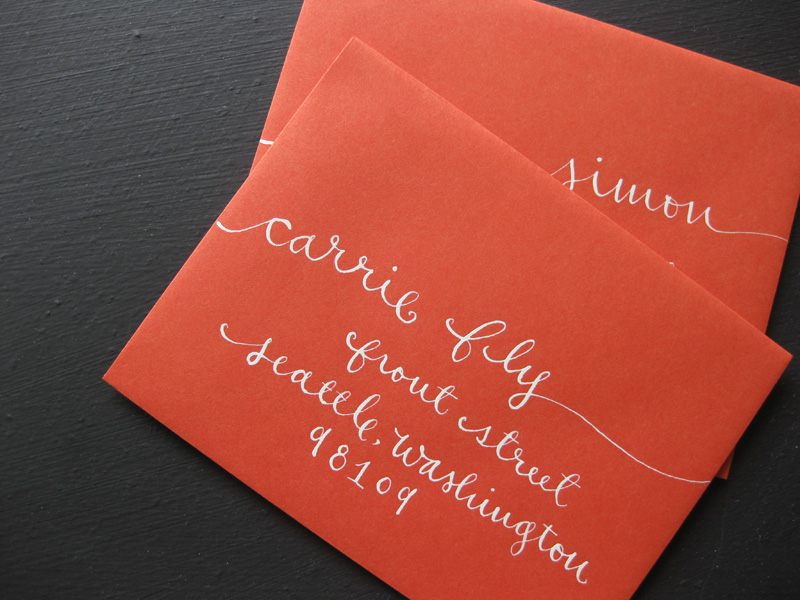 simon
carrie fly
front street
seattle, washington
98109